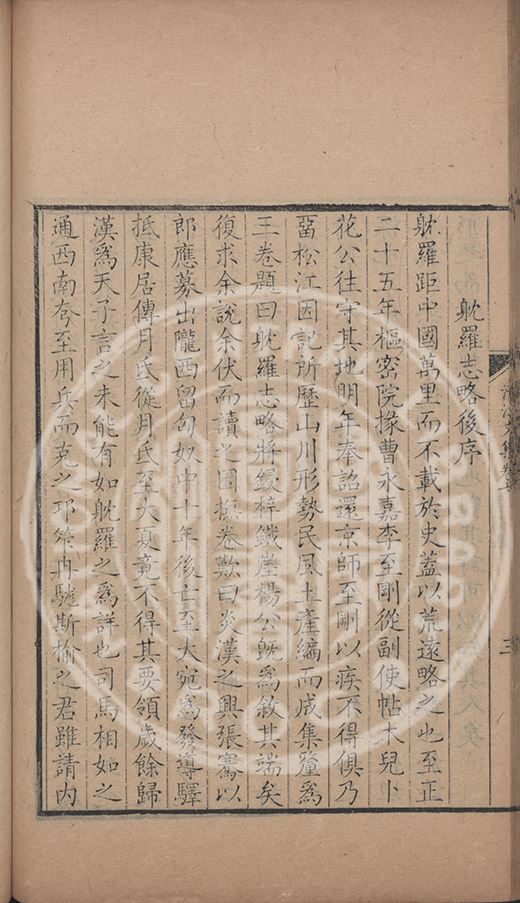 躭羅志略後序
躭羅距中國萬里而不載於史蓋以荒遠略之也至正
二十五年樞密院掾曹永嘉李至剛從副使帖木兒卜
花公往守其地明年奉詔還京師至剛以疾不得俱乃
畱松江因記所歷山川形勢民風土產編而成集釐為
三卷題曰躭羅志略將鋟梓鐵崖楊公旣為敘其端矣
復求余說余伏而讀之因撫卷歎曰炎漢之興張騫以
郎應募出隴西留匈奴中十年後亡至大宛為發導驛
抵康居傳月氏從月氏至大夏竟不得其要領歲餘歸
漢為天子言之未能有如躭羅之為詳也司馬相如之
通西南夸至用兵而克之邛筰冉駹斯榆之君雖請內